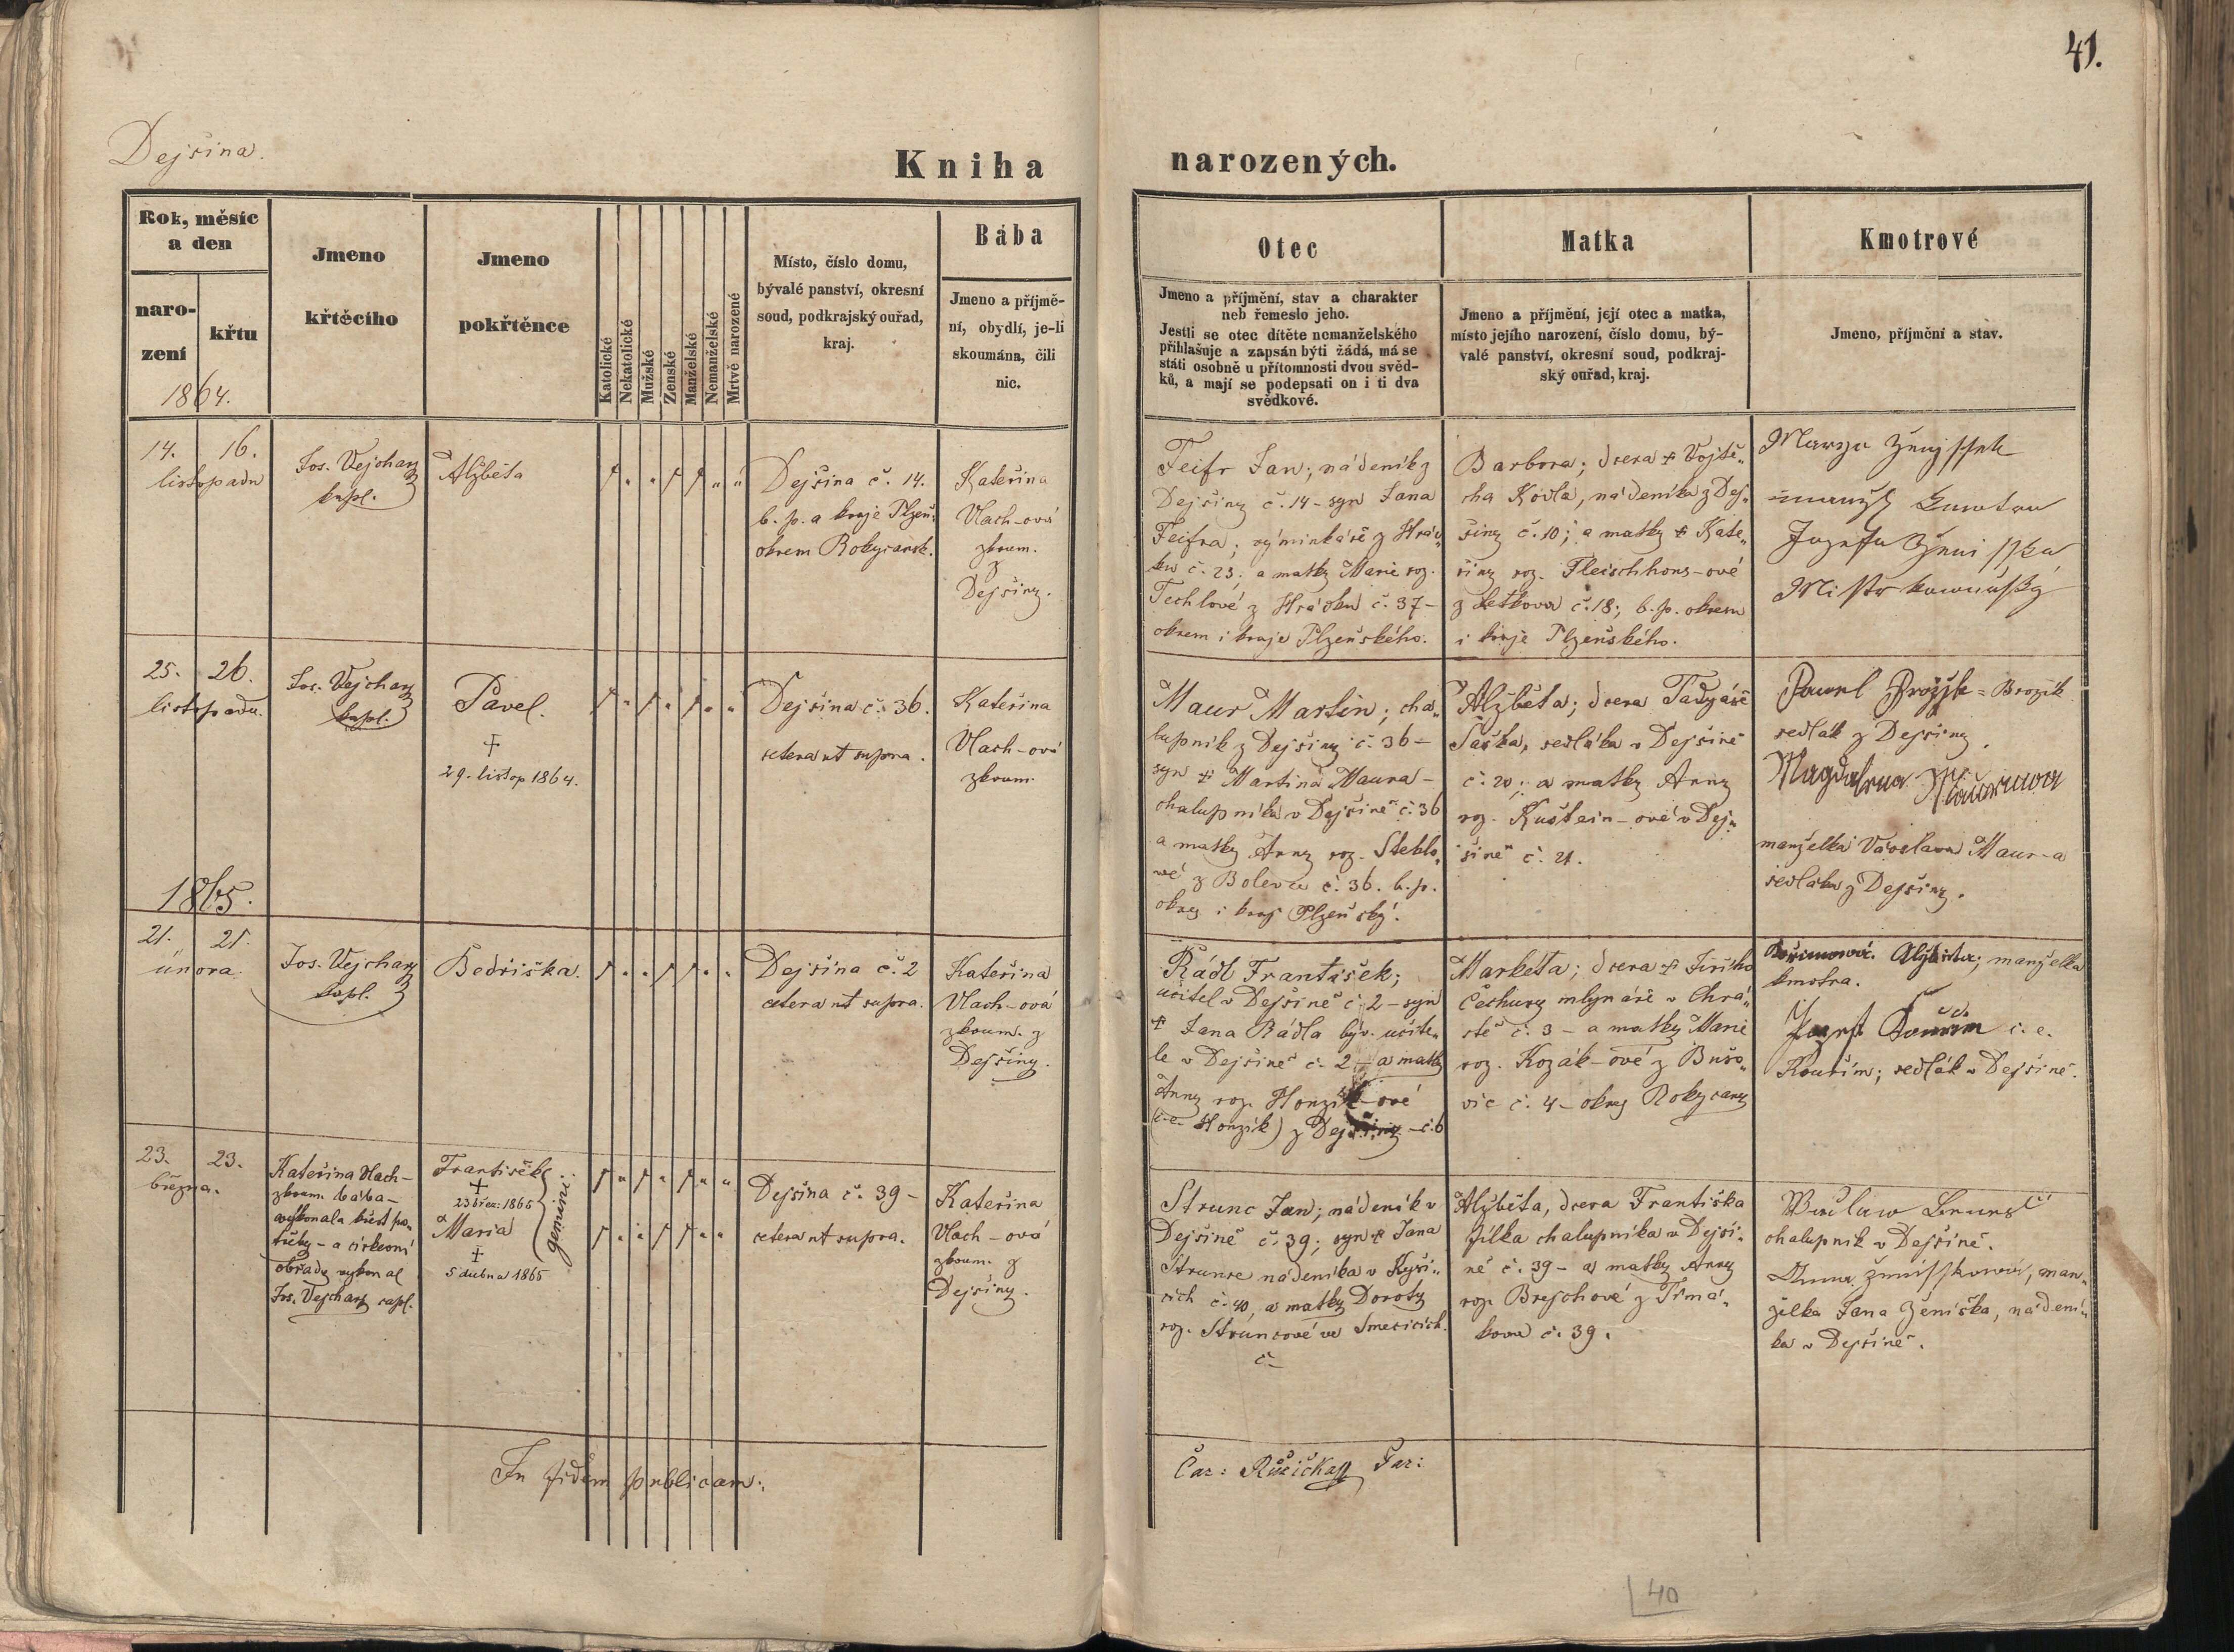 41.
Dejšina.
Kniha narozených.
Rok, měsíc
a den
naro-
zení
křtu
1864.
Jmeno
křtěcího
Jmeno
pokřtěnce
Katolické
Nekatolické
Mužské
Ženské
Manželské
Nemanželské
Mrtvě narozené
Místo, číslo domu,
bývalé panství, okresní
soud, podkrajský ouřad,
kraj.
Bába
Jmeno a příjmě-
ní, obydlí, je-li
skoumána, čili
nic.
Otec
Jmeno a příjmění, stav a charakter
neb řemeslo jeho.
Jestli se otec dítěte nemanželského
přihlašuje a zapsán býti žádá, má se
státi osobně u přítomnosti dvou svěd-
ků, a mají se podepsati on i ti dva
svědkové.
Matka
Jmeno a příjmění, její otec a matka,
místo jejího narození, číslo domu, bý-
valé panství, okresní soud, podkraj-
ský ouřad, kraj.
Kmotrové
Jmeno, příjmění a stav.
14. 16.
listopadu
Jos. Vejchar
kapl.
Alžběta
Dejšina č. 14.
b. p. a kraje Plzeň.
okrem Rokycansk.
Kateřina
Vlach-ová
zkoum.
z
Dejšiny.
Feifr Jan; nádeník z
Dejšiny č. 14 - syn Jana
Feifra; výminkáře z Hrád„
ku č. 23; a matky Marie roz.
Techlové z Hrádku č. 37 -
okrem i kraje Plzeňského.
Barbora; dcera + Vojtě„
cha Kodla, nádeníka z Dej„
šiny č. 10; a matky + Kate„
řiny roz. Fleischhans-ové
z Letkova č. 18; b. p. okrem
i kraje Plzeňského.
25. 26.
listopadu.
Jos. Vejchar
kapl.
Pavel.
+
29. listop 1864.
Dejšina č. 36.
cetera ut supra.
Kateřina
Vlach-ová
zkoum.
Maur Martin; cha„
lupník z Dejšiny č. 36 -
syn + Martina Maura -
chalupníka v Dejšině č. 36
a matky Anny roz. Steblo„
vé z Bolevce č. 36. b. p.
okres i kraj Plzeňský.
Alžběta; dcera Tadyáše
Saska, sedláka v Dejšině
č. 20; a matky Anny
roz. Kustein-ové v Dej„
šině č. 21.
Pawel Brožjk = Brozík
sedlák z Dejšiny.
Magdalena Maurowa
manželka Václava Maur-a
sedláka z Dejšiny.
1865.
21. 21.
února.
Jos. Vejchar
kapl.
Bedřiška.
Dejšina č. 2
cetera ut supra.
Kateřina
Vlach-ová
zkoum. z
Dejšiny.
Rádl František;
učitel v Dejšině č. 2 - syn
+ Jana Rádla býv. učite„
le v Dejšině č. 2 - a matky
Anny roz. Honzik-ové
(c. e. Honzík) z Dejšiny - č. 6
Marketa; dcera + Jiřího
Čechury mlynáře v Chrá„
stě č. 3 - a matky Marie
roz. Kozák-ové z Bušo„
vic č. 4 - okres Rokycany
Alžběta; manželka
kmotra.
Jozef Kouřim c. e.
Kouřím; sedlák v Dejšině.
23. 23.
března.
Kateřina Vlach -
zkoum. bába -
vykonala křest po„
třeby - a církevní
obřady vykonal
Jos. Vejchar capl.
František
+
23 břez. 1865
Maria
+
5 dubna 1865
gemini.
Dejšina č. 39 -
cetera ut supra.
Kateřina
Vlach-ová
zkoum. z
Dejšiny.
Strunc Jan; nádeník v
Dejšině č. 39; syn + Jana
Strunce nádeníka v Kyši„
cích č. 40, a matky Doroty
roz. Strúncové ve Smečicích.
č. -
Alžběta, dcera Františka
Jílka chalupníka v Dejši„
ně č. 39 - a matky Anny
roz. Brejchové z Tčmá„
kova č. 39.
Waclaw
chalupník v Dejšině.
Anna man„
želka Jana Ženíška, nádení„
ka v Dejšině.
In fidem publicam:
Car: Růžička Far:
40